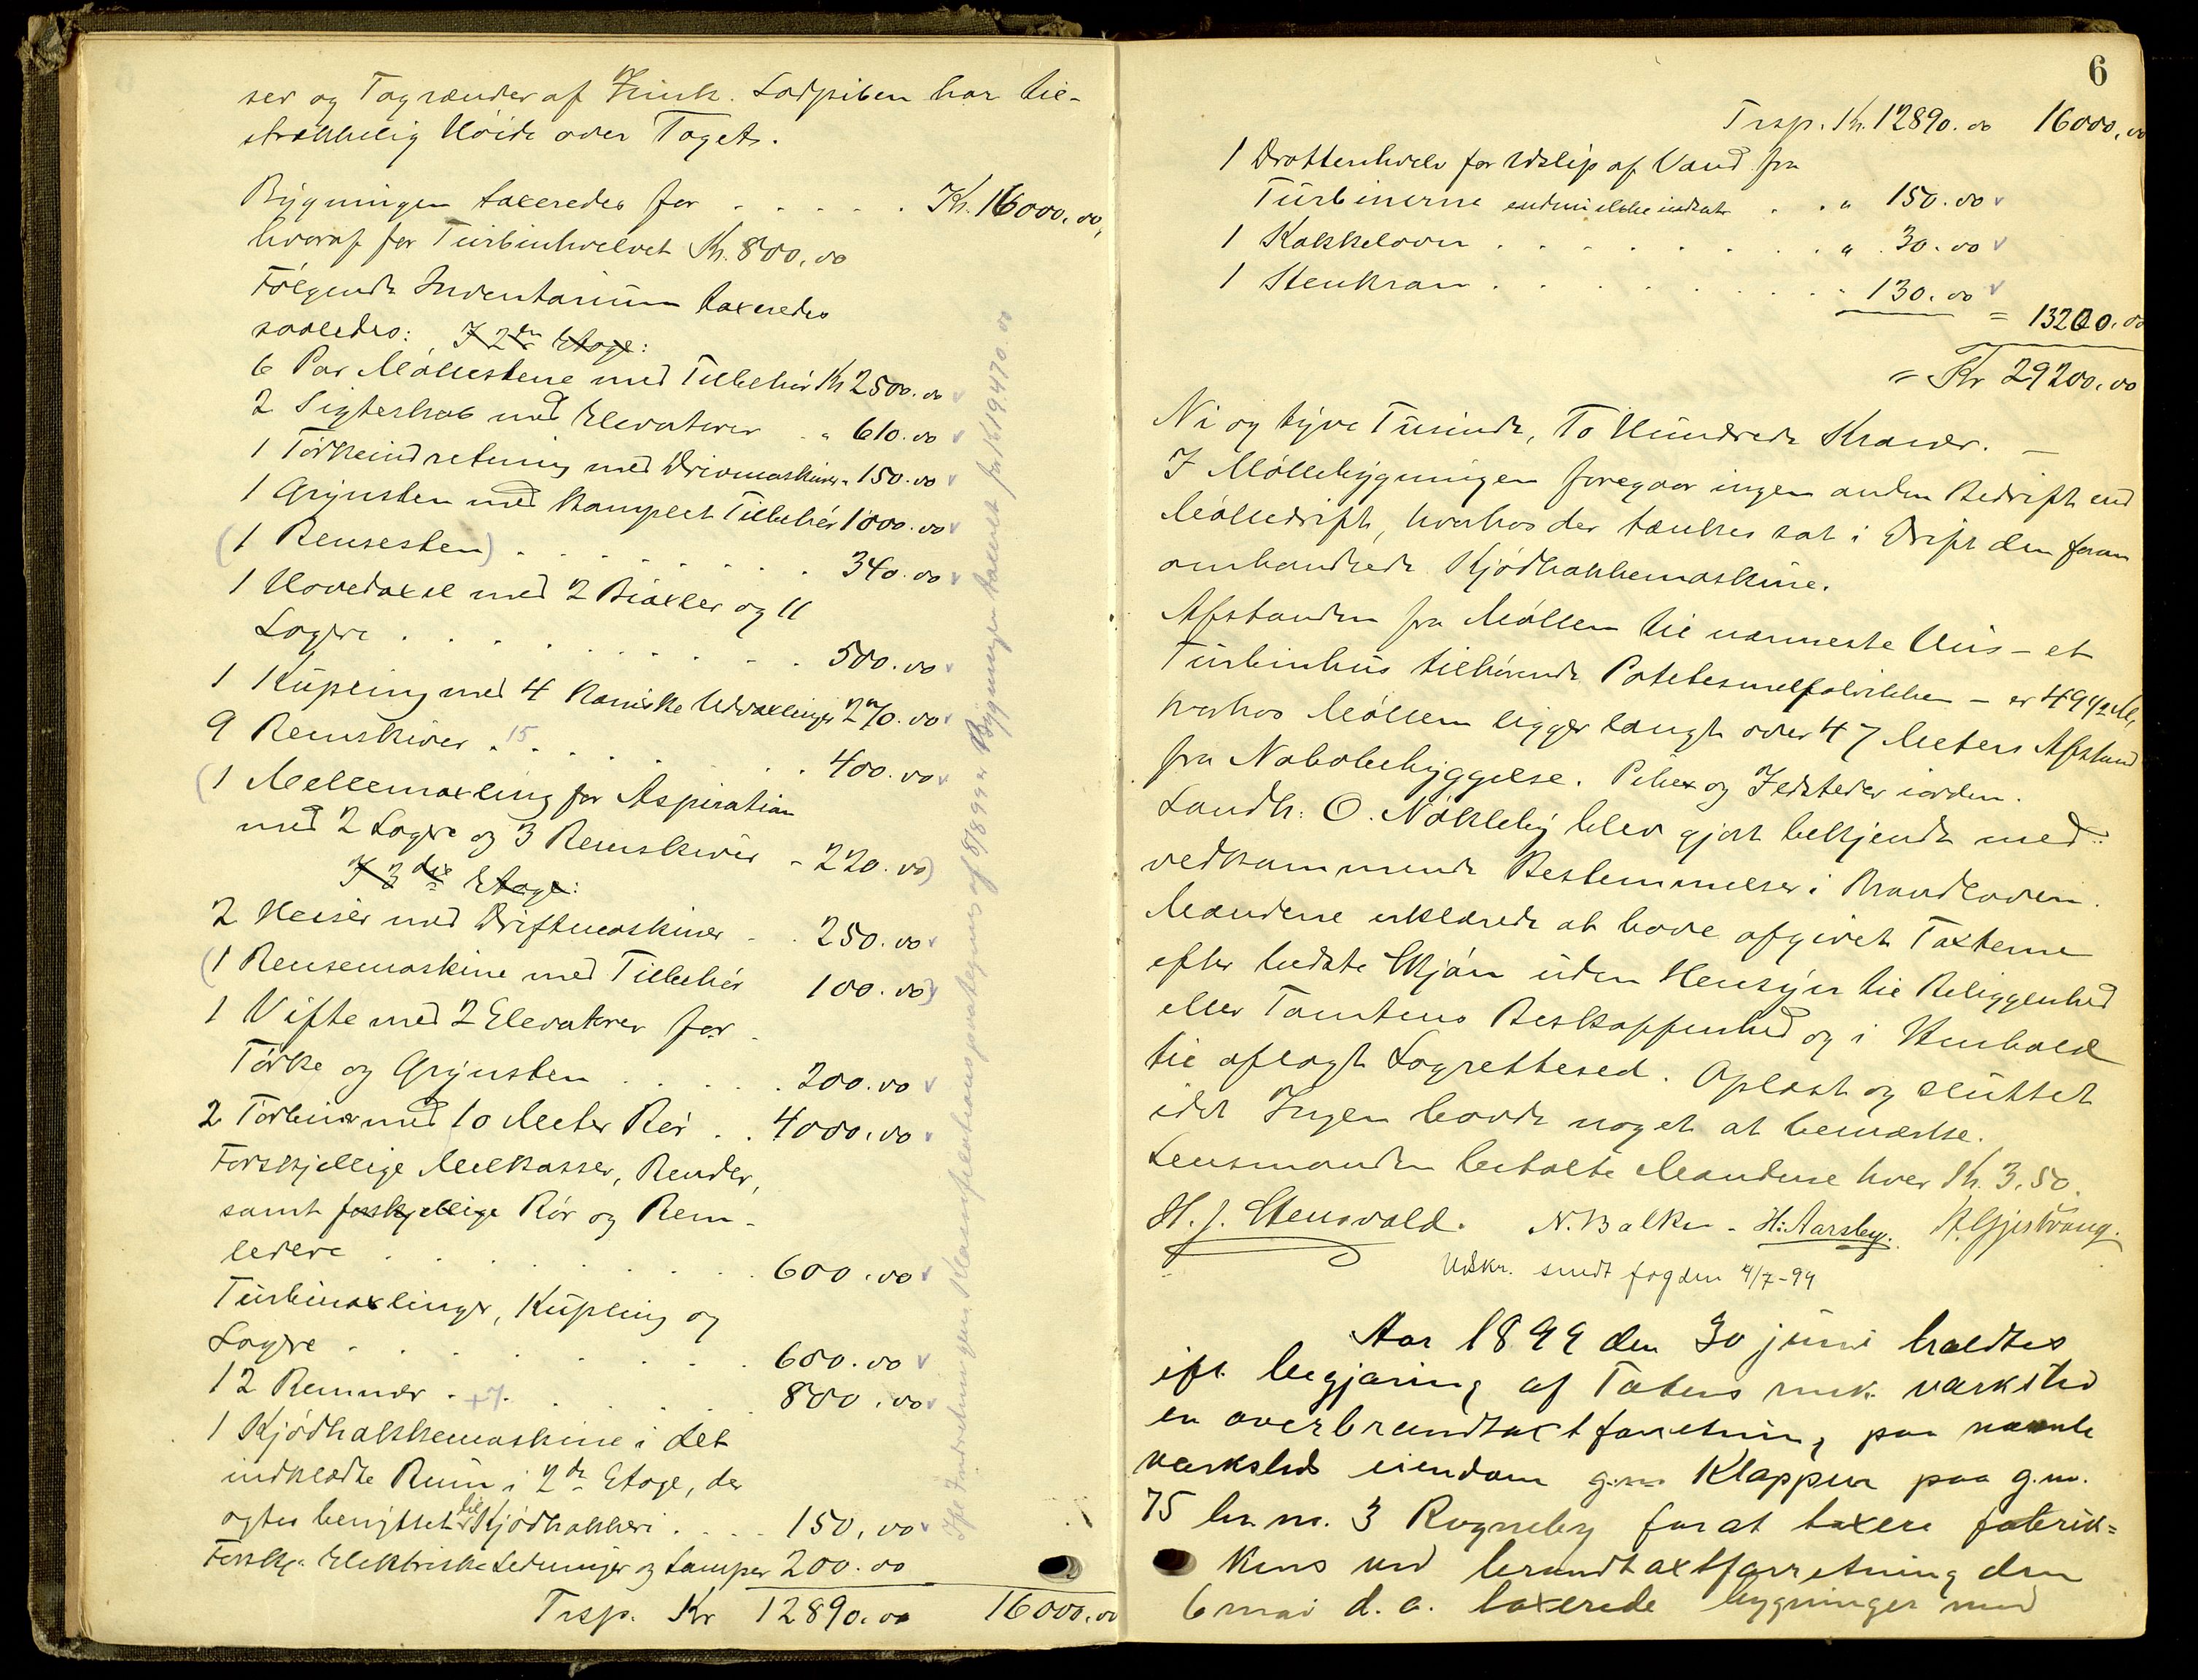 ser og Tagrender af Zink. Lodpiben har til-
strækkelig Höide over Taget.
Bygningen taxeredes for . . . . . Kr. 16000,00,
hvoraf for Turbinhvelvet Kr. 800,00
Fölgende Inventarium taxeredes
saaledes: I 2den Etage:
6 Par Möllestene med Tilbehör Kr 2500.00
2 Sigteskab med Elevatorer . " 610.00
1 Törkeindretning med Drivmaskiner " 150.00
1 Grynsten med komplet Tilbehör 1000.00
(1 Rensesten) . . . . . . 340.00
1 Hovedaxel med 2 Biaxler og 11
Lagere . . . . . . . . 500.00
1 Kupling med 4 koniske Udvexlinger 270.00
9 Remskiver . 15 . . . . . 400.00
(1 Mellemaxling for Aspiration
med 2 Lagre og 3 Remskiver - 220.00)
I 3die Etage:
2 Heiser med Driftmaskiner . . 250.00
(1 Rensemaskine med Tilbehör 100.00)
1 Vifte med 2 Elevatorer for
Törke og Grynsten . . . . . 200.00
2 Törbiner med 10 Meter Rör . . 4000.00
Forskjellige Melkasser, Render,
samt forskjellige Rör og Rem-
ledere . . . . . . . . 600.00
Turbinaxlinger, Kupling og
Lagre . . . . . . . . 600.00
12 Remmer . +7 . . . . . 800.00
1 Kjödhakkemaskine i det
indklædte Rum i 2den Etage, der
agtes benyttet til Kjödhakkeri . . . . 150,00
Forskj. Elektriske Ledninger og Lamper 200.00
Trsp. Kr 12890.00 16000.00
Ifr. Indretningen Klassifikationsprotegnes af 8/8 99 er Bygningen taxeret for Kr 19470.00
6
Trsp. Kr. 12890.00 16000,00
1 Drottenhvelv for Udslip af Vand fra
Turbinerne endnu ikke indsat . . " 150.00
1 Kakkelovn . . . . . . . . " 30.00
1 Stenkran . . . . . . . . 130.00
= 13200.00
= Kr 29200.00
Ni og tyve Tusinde, To Hundrede Kroner. —
I Möllebygningen foregaar ingen anden Bedrift end
Mölledrift, hvorhos der tænkes sat i Drift den foran
omhandlede Kjödhakkemaskine.
Afstanden fra Möllen til nærmeste Hus - et
Turbinhus tilhörende Potetesmelfabrikken - er 49 1/2 M,
hvorhos Möllen ligger langt over 47 Meters Afstand
fra Nabobebyggelse. Piber og Ildsteder i orden.
Landh. O. Nökleby blev gjort bekjendt med
vedkommende Bestemmelser i Brandloven.
Mændene erklærede at have afgivet Taxterne
efter bedste Skjön uden Hensyn til Beliggenhed
eller Tomtens Beskaffenhed og i Henhold
til aflagt Lagretteed. Oplæst og sluttet
idet Ingen havde noget at bemærke.
Lensmanden betalte Mændene hver Kr. 3.50.
H. J. Stensvald. N. Balke - H: Aarsby. A. Gjestvang.
Udskr. sendt fogden 4/7-99
Aar 1899 den 30 juni holdtes
ifl. begjæring af Totens mek. værksted
en overbrandtaxtforretning paa nævnte
værksteds eiendom g.no Klappen paa g.no.
75 br. no. 3 Rogneby for at taxere fabrik-
kens ved brandtaxtforretning den
6 mai d. a. taxerede bygninger med